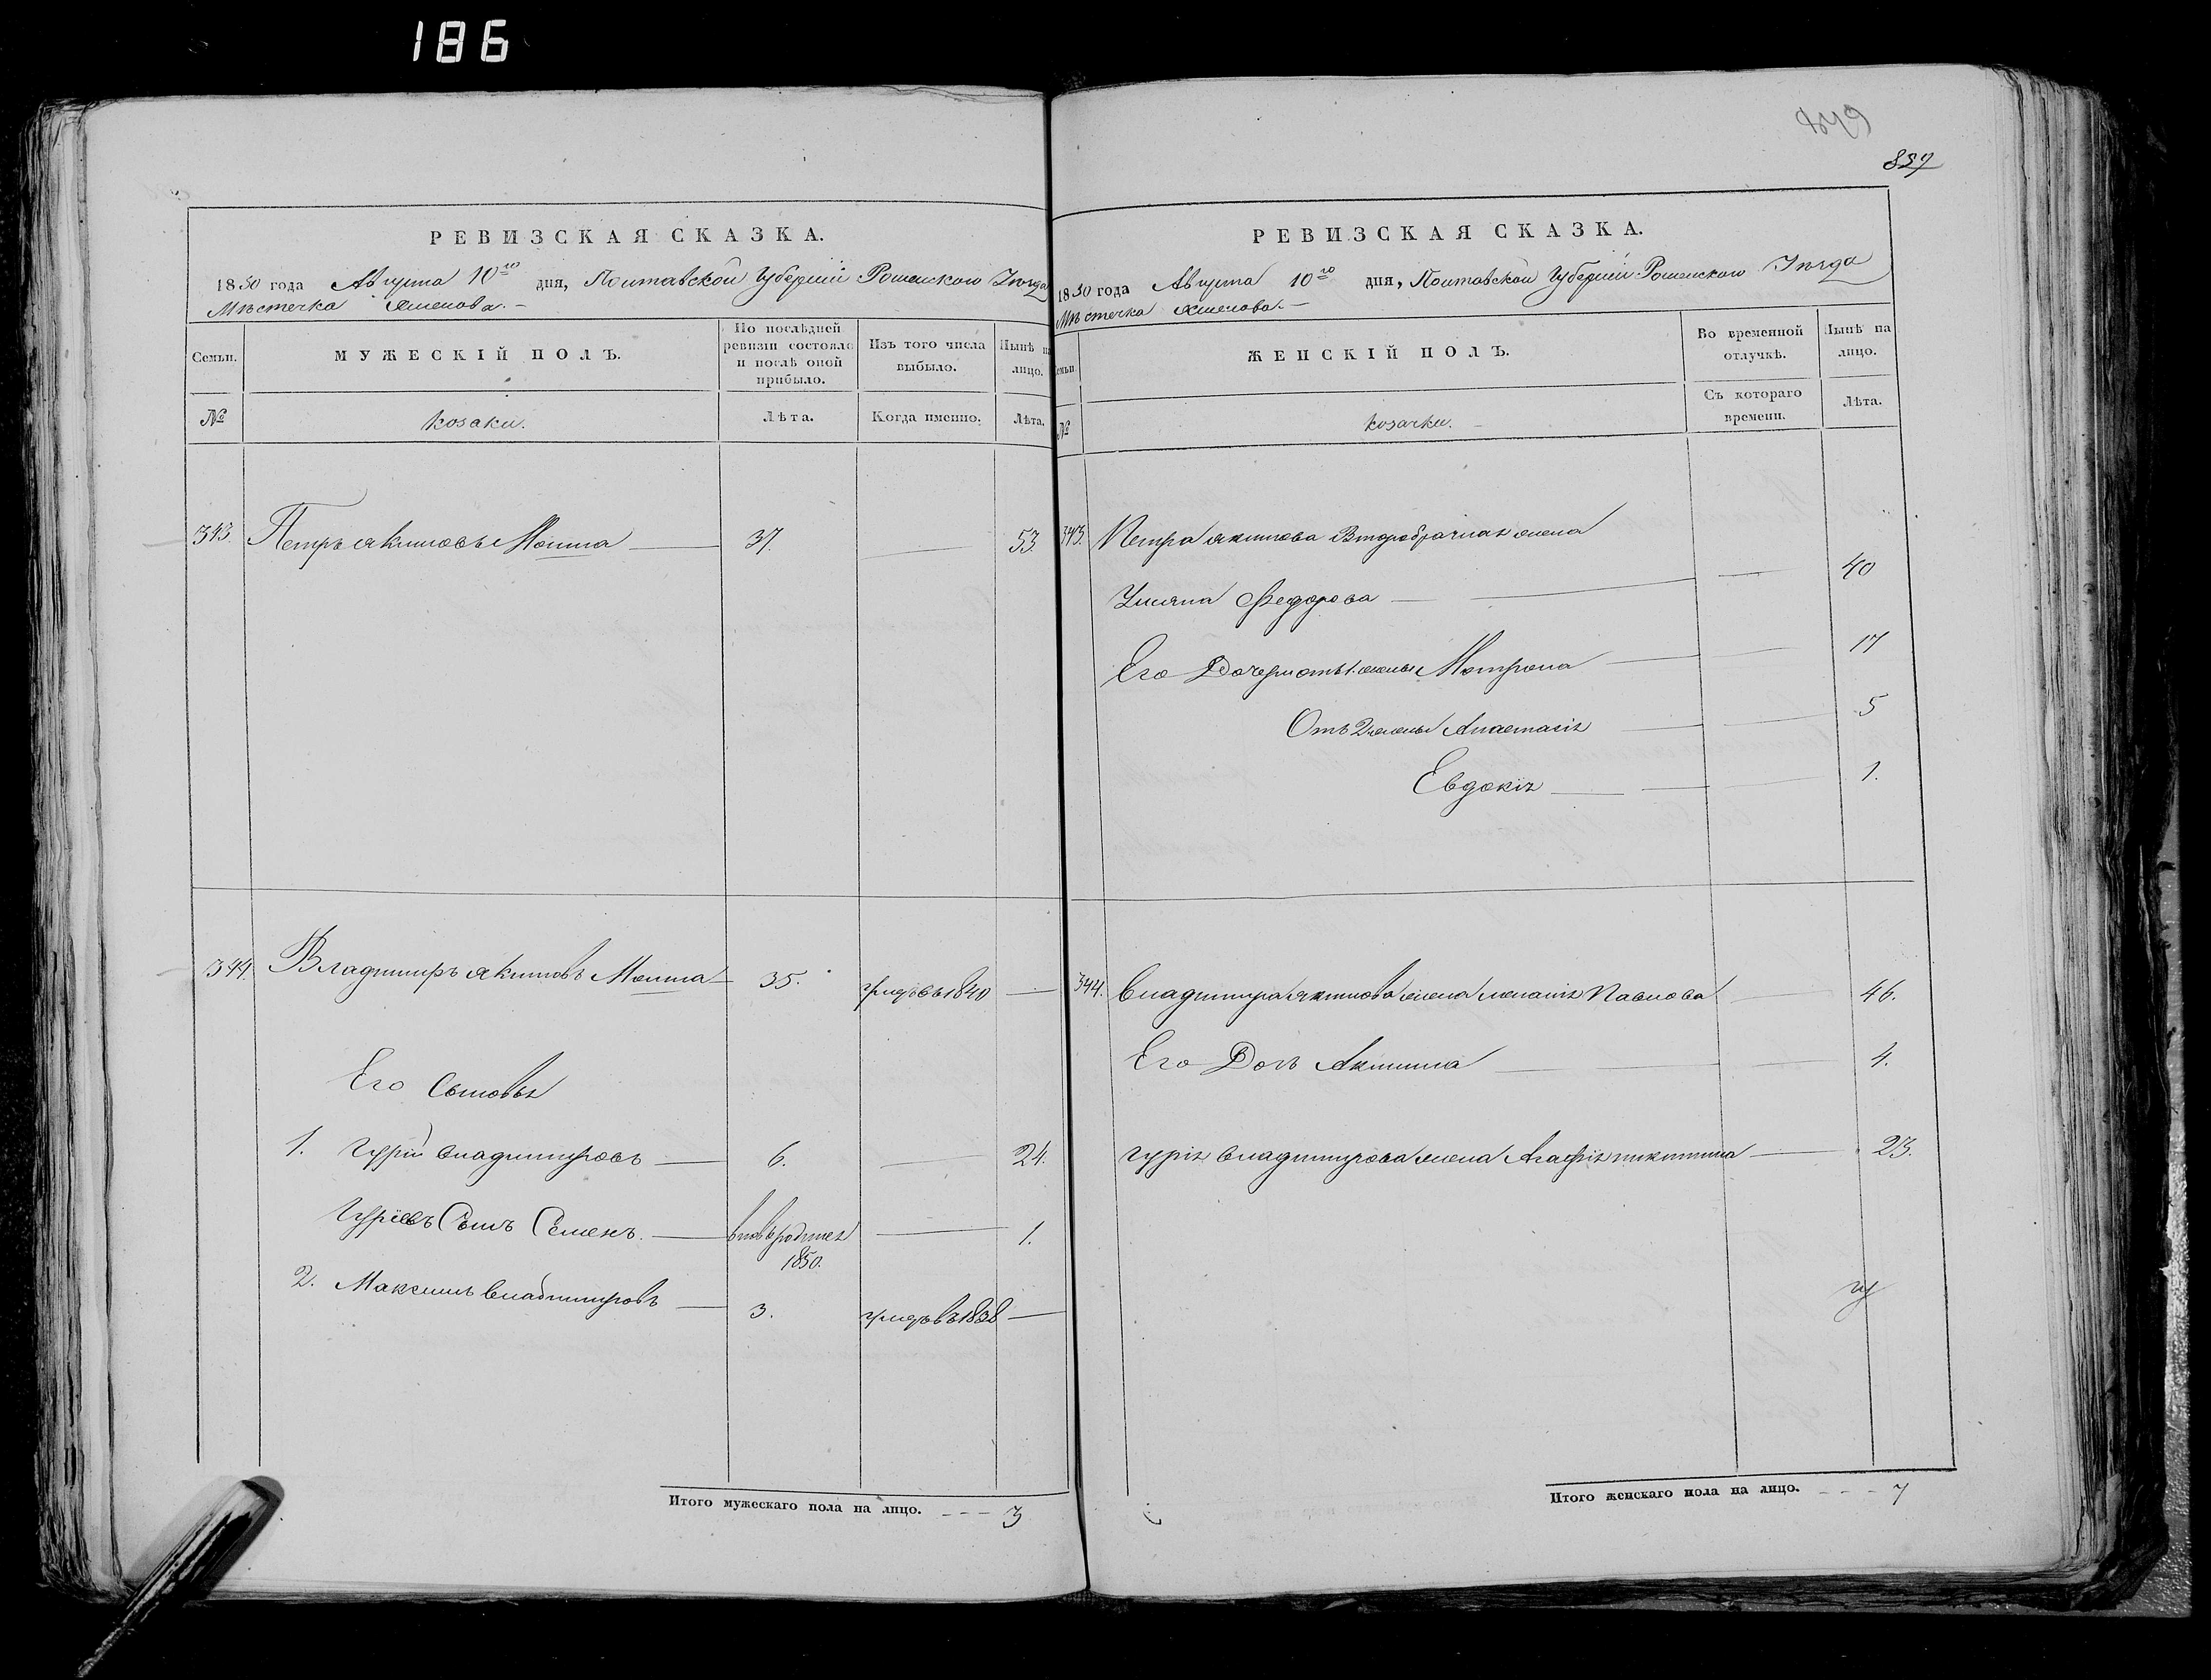 186
849
857
РЕВИЗСКАЯ СКАЗКА.
1850 года Августа 10го дня, Полтавской Губерніи Роменскаго Уѣзда
Мѣстечка
МУЖЕСКІЙ ПОЛЪ.
Семьи.
По послѣдней ревизіи состояло и послѣ оной прибыло.
Изъ того числа выбыло.
Нынѣ на лицо.
№
козаки.
Лѣта.
Когда именно.
Лѣта.
343. Петръ Якимовъ 37. 53.
344. Владимиръ Якимовъ 35. умеръ въ 1840
Его Сыновья
1. Гурій Владимировъ 6. 24.
Гуріевъ Сынъ Семенъ. вновь родился 1850. 1.
2. Максимъ Владимировъ 3. умеръ въ 1838
Итого мужескаго пола на лицо. 3
РЕВИЗСКАЯ СКАЗКА.
1850 года Августа 10го дня, Полтавской Губерніи Роменскаго Уѣзда
Мѣстечка
Семьи.
ЖЕНСКІЙ ПОЛЪ.
Во временной отлучкѣ.
Нынѣ на лицо.
№
козачки.
Съ котораго времени.
Лѣта.
343. Петра Якимова Второбрачная жена
Ульяна Федорова 40
Его Дочери отъ 1. жены Мотрона 17
Отъ 2 жены Анастасія 5
Евдокія 1.
344. Владимира Якимова жена Меланія Павлова 46.
Его Дочь Акилина 4.
Гурія Владимирова жена Агафія Никитина 23.
Итого женскаго пола на лицо. 7